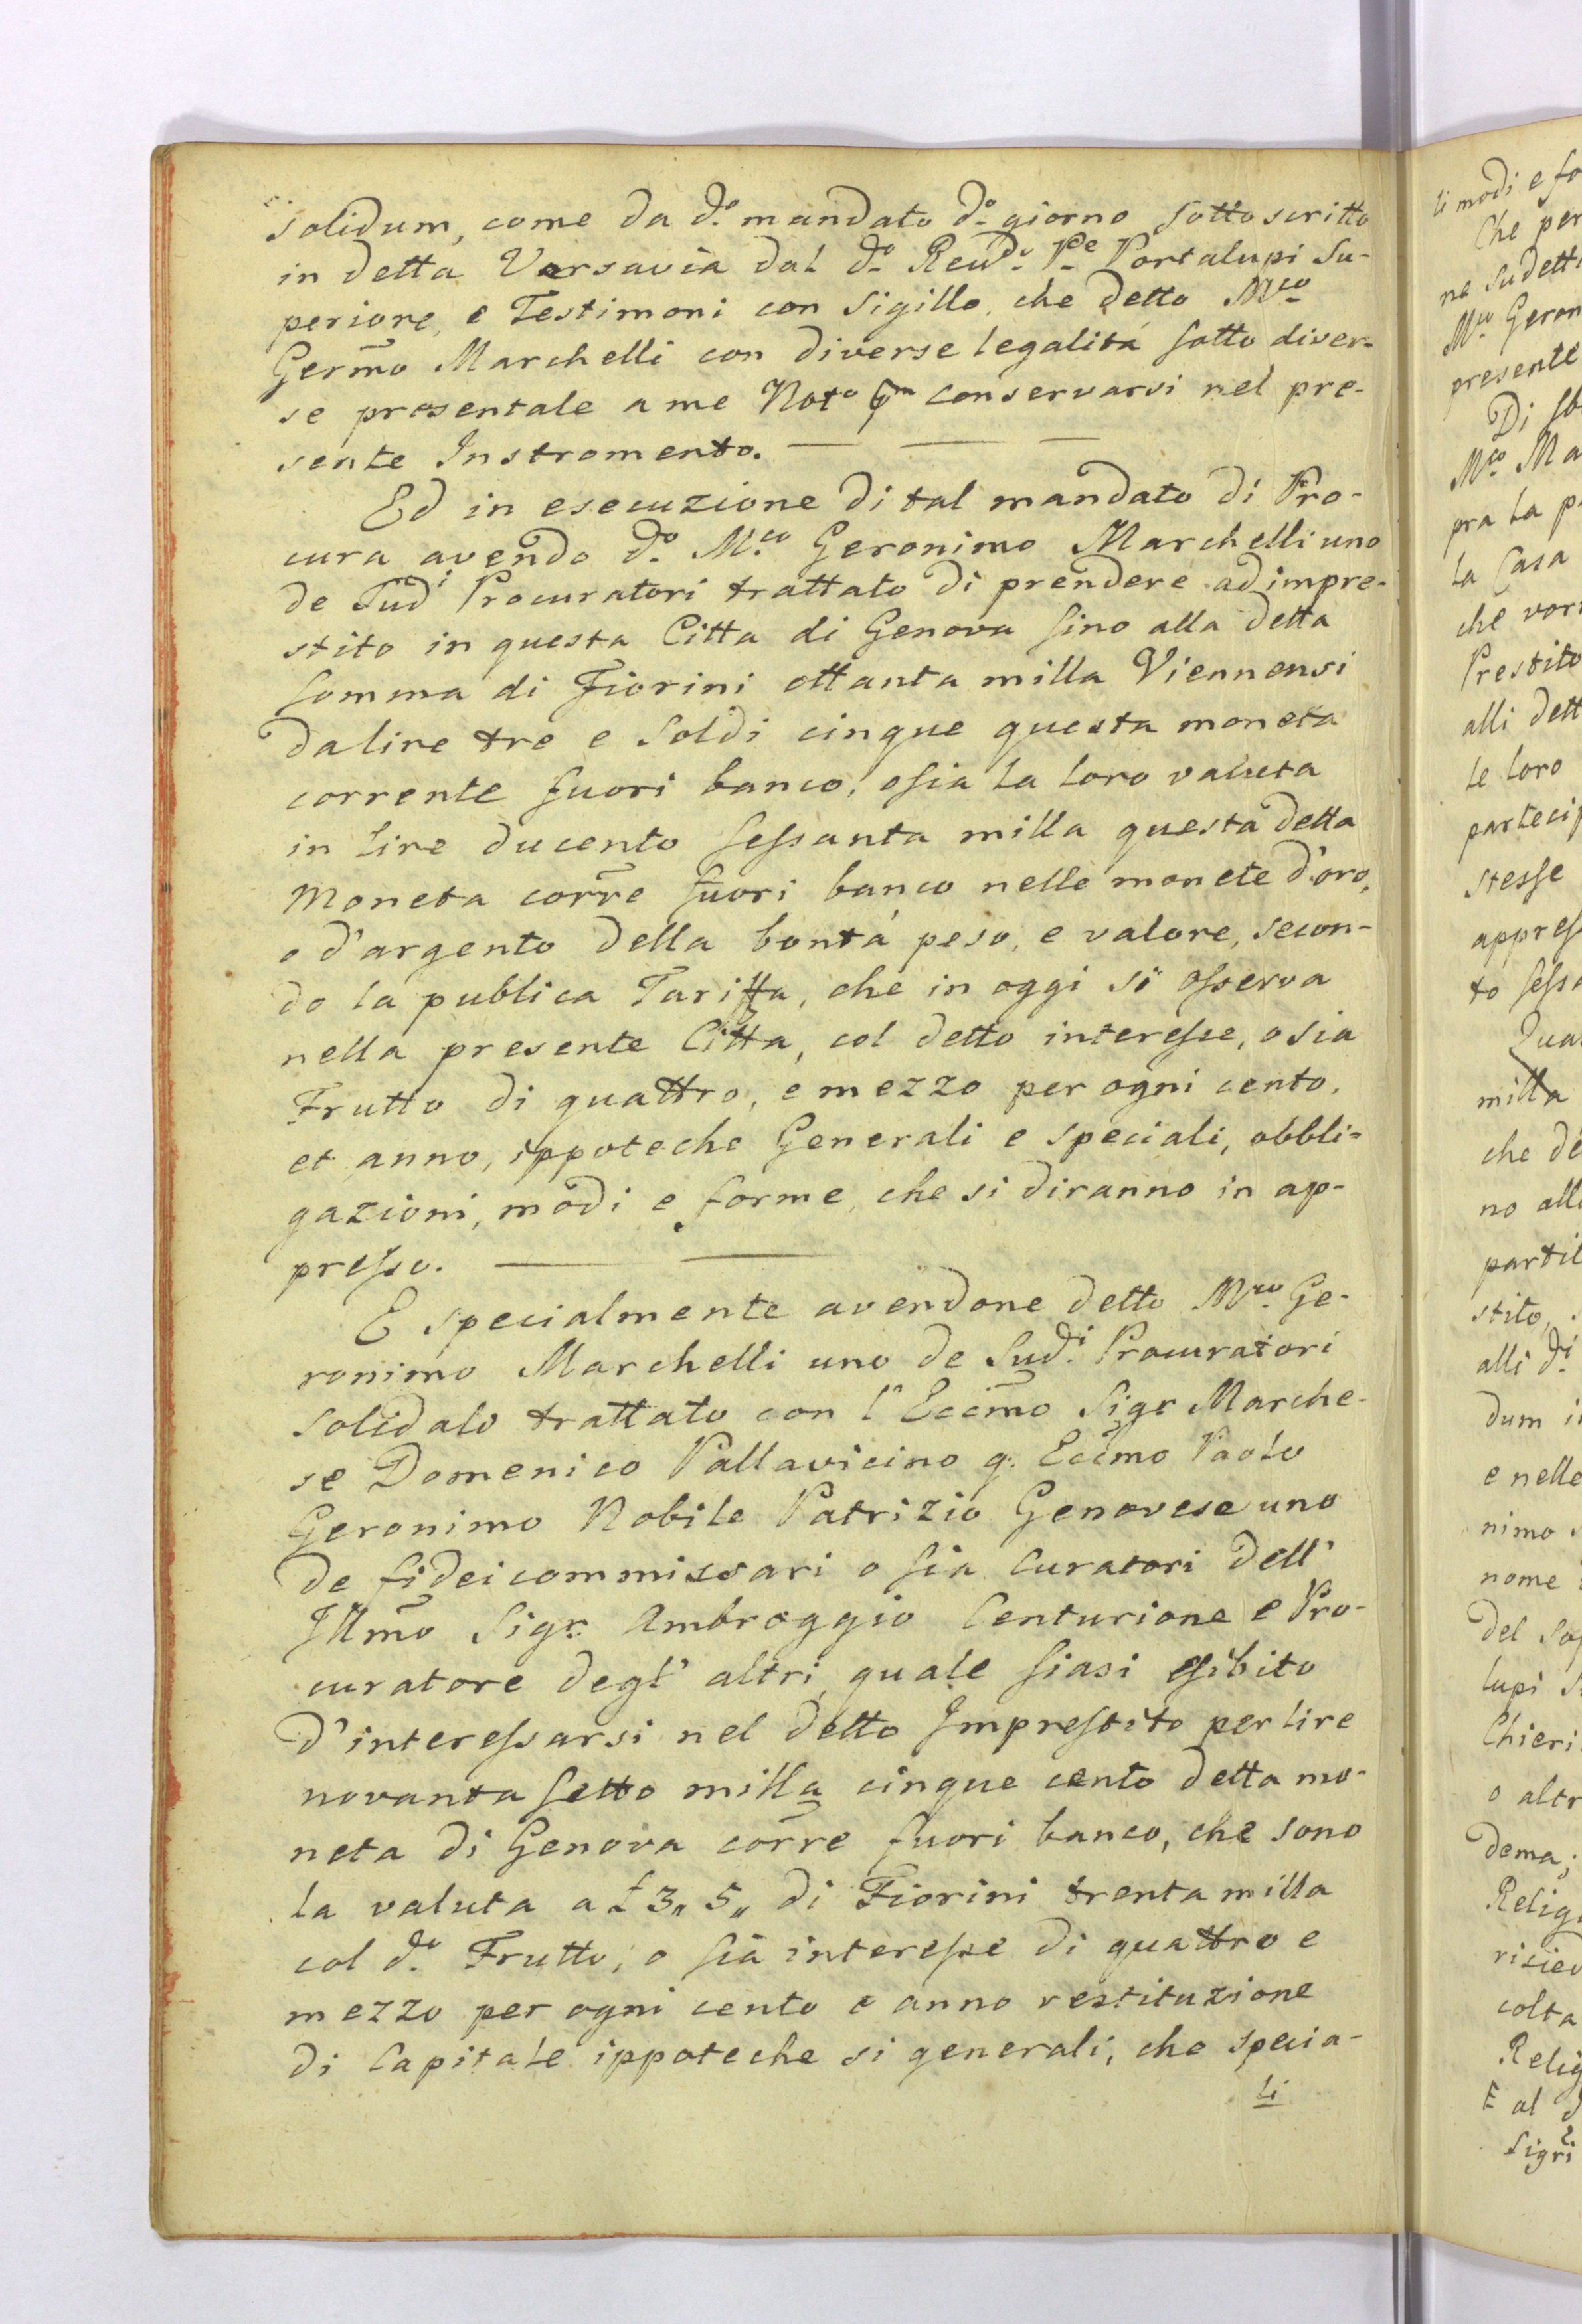 solidum, come da d.o mandato d.o giorno sottoscritto
in detta Varsavia dal d.o Reu.do P.e Portalupi Su-
periore, e Testimoni con sigillo, che detto M.co
Germo Marchelli con diverse legalitá sotto diver-
se presentale a me Noto conservarsi nel pre-
sente Instromento.
Ed in esecuzione di tal mandato di Pro-
cura avendo d.o M.co Geronimo Marchelli uno
de Sud.i Procuratori trattato di prendere ad impre-
stito in questa Citta di Genova sino alla detta
somma di Fiorini ottanta milla Viennensi
da lire tre e soldi cinque questa moneta
corrente fuori banco, osia la loro valuta
in lire ducento sessanta milla questa detta
Moneta corre fuori banco nelle monete d'oro,
o d'argento della bontá peso, e valore, secon-
do la publica Tariffa, che in oggi si osserva
nella presente Citta, col detto interesse, o sia
Frutto di quattro, e mezzo per ogni cento,
et anno, ippoteche Generali e speciali, obbli-
gazioni, modi e forme che si diranno in ap-
presso.
E specialmente avendone detto M.co Ge-
ronimo Marchelli uno de Sud.i Procuratori
solidalo trattato con l'Eccmo Sigr Marche-
se Domenico Pallavicino q. Eccmo Paolo
Geronimo Nobile Patrizio Genovese uno
de fideicommissari o sia Curatori dell'
Illmo Sigr. Ambroggio Centurione e Pro-
curatore degl' altri, quale siasi esibito
d'interessarsi nel detto Imprestito per lire
novanta sette milla cinque cento detta mo-
neta di Genova corre fuori banco, che sono
la valuta a £ 3„ 5„ di Fiorini trenta milla
col d.o Frutto, o sia interesse di quattro e
mezzo per ogni cento e anno restituzione
di Capitale ippoteche si generali, che specia-
li
li modi e fo
Che per
na sudett
M.co Geron
presente
Di
M.co Ma
pra la p
la Casa
che vor
Prestito
alli dett
le loro
partecip
stesse
appress
to sess
Qua
milla
che de
no all
partit
stito,
alli d.i
dum i
e nelle
nimo s
nome
del so
lupi S
Chieri
o altr
dema;
Relig
risied
colta
Relig
E al d
Sigri